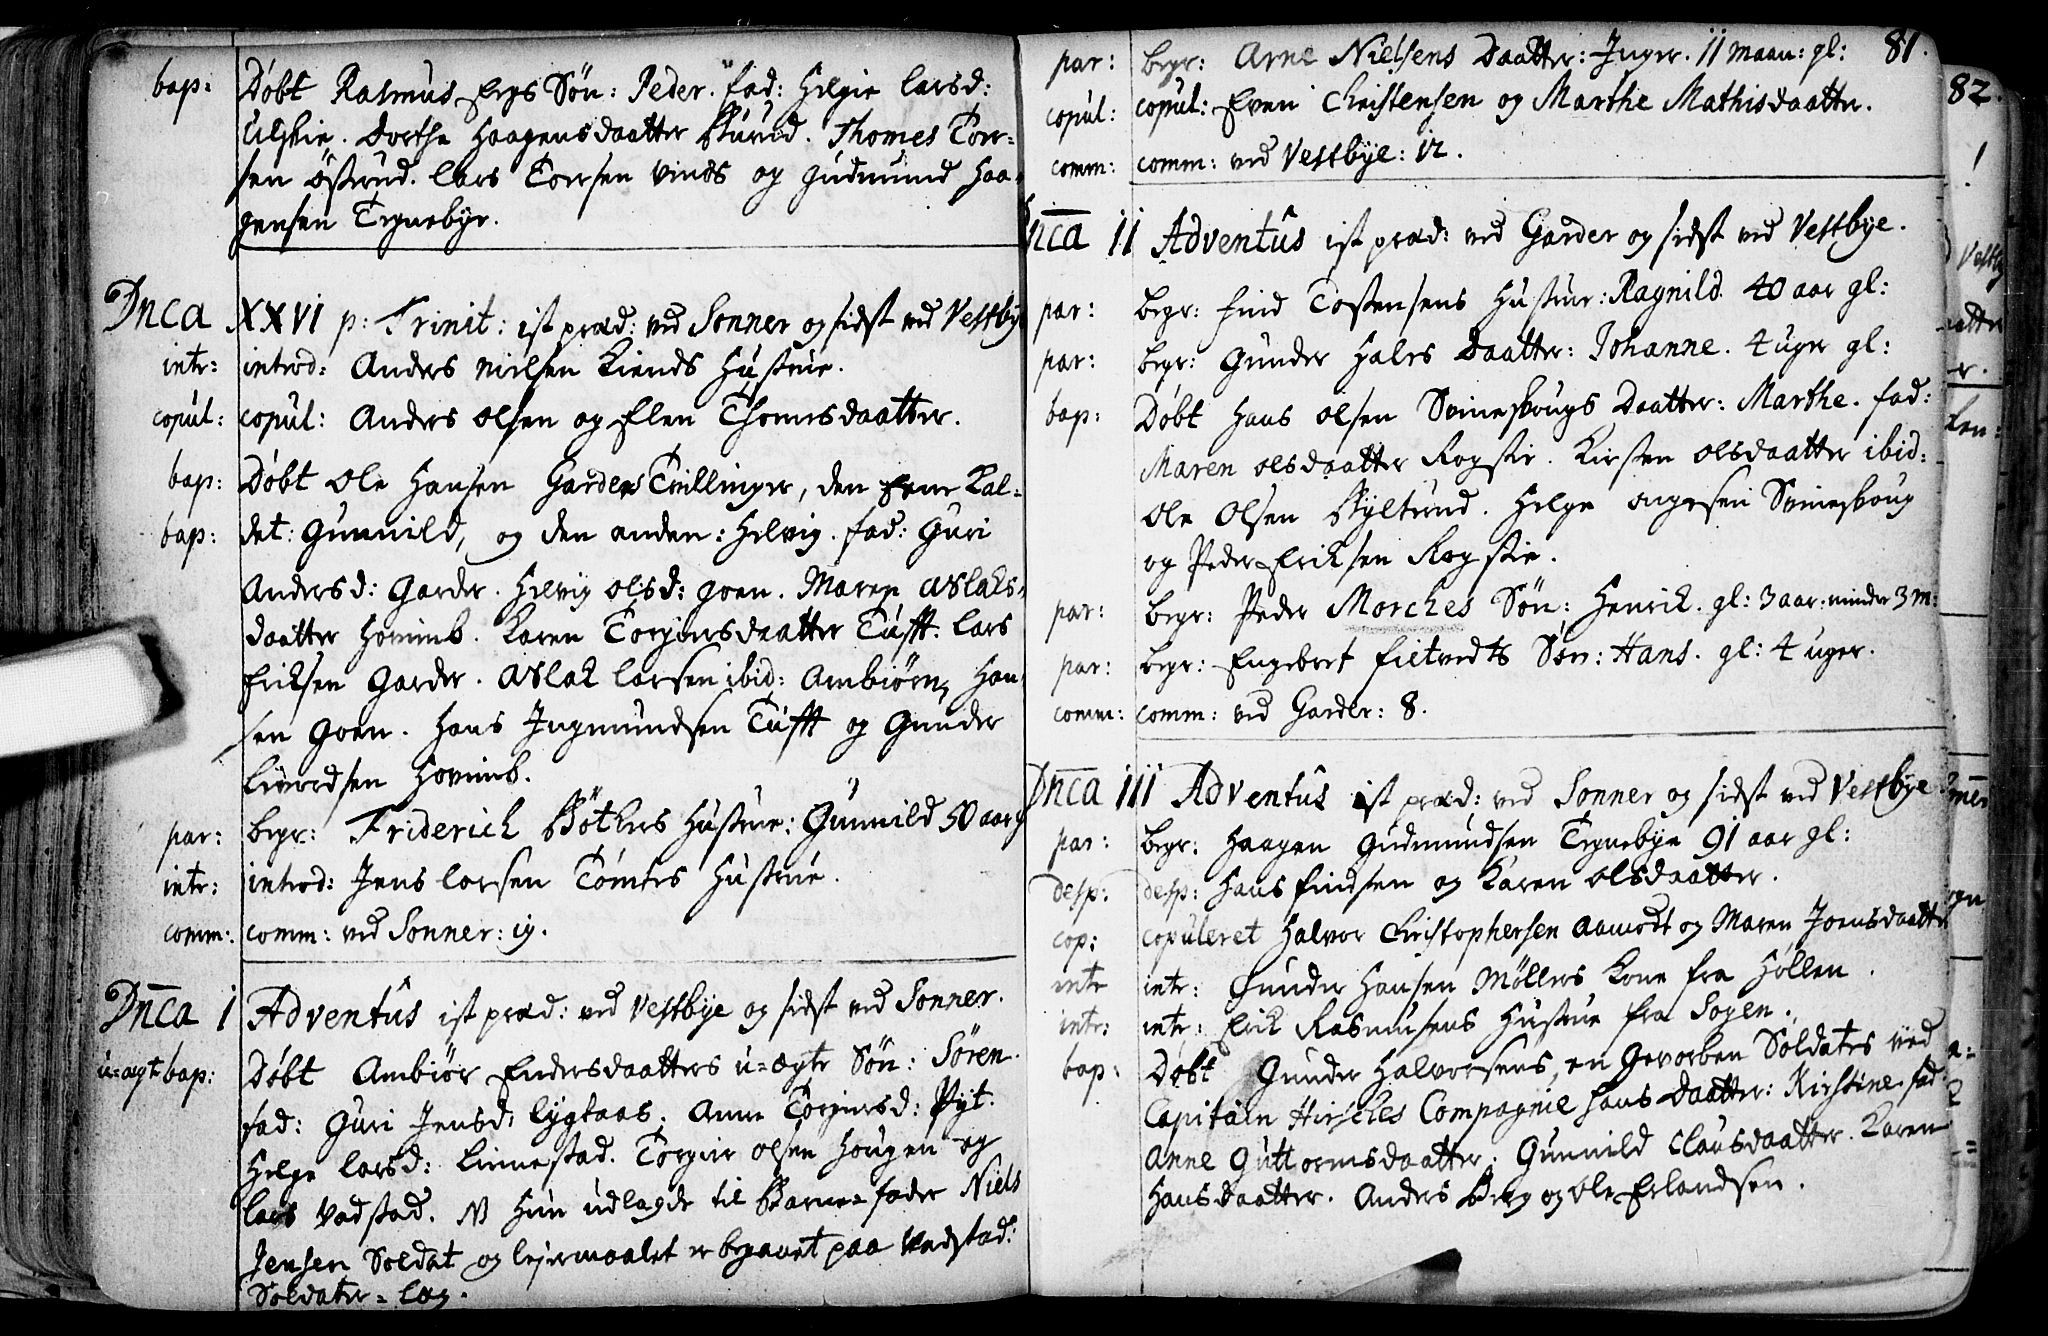 bap: Døbt Rasmus Eegs Søn: Peder. fad: Helgie larsd:
Ulshie. Dorthe Haagensdaatter Burud. Thomes Torr=
sen Östrud. lars Torrsen vinds og Gudmund Haa=
gensen Tegnebye.
Dnca XXVI p: Trinit: ist præd: ved Sonner og sidst ved Vestby
intr: introd: Anders Nielsen Kiends Hustrue.
copul: copul: Anders olsen og Elen Thomesdaatter.
bap: Døbt Ole Hansen Garders Tvillinger, den Eene Kal=
bap: det: Gunnild, og den anden: Helvig. fad: Guri
Andersd: Garder. Helvig olsd: goen. Maren Aslaks=
daatter Hovimb. Karen Torgiersdaatter Tufft. lars
Eriksen Garder. Aslak larsen ibid: Ambiørn Han=
sen Goen. Hans Ingmundsen Tufft og Gunder
Livordsen Hovimb.
par: begr: Friderich Bøtkers Hustrue: Gunnild 50 aar g
intr: introd: Jens larsen Tømers Hustrue.
comm: comm: ved Sonner: 19.
Dnca I Adventus ist præd: ved Vestbye og sidst ved Sonner.
u=ægt bap: Døbt Ambiør Endersdaatters u=ægte Søn: Sören.
fad: Guri Jensd: lygtaas. Anne Torgiersd: Pyt.
Helge larsd: Linnestad. Torgier olsen Hougen og
lars Vadstad. NB Hun udlagde til Barne=fader Niels
Jensen Soldat og leiermaalet er begaaet paa Vadstad:
Soldater=læg.
81.
par: begr: Arne Nielsens Daatter: Inger. 11 maan: gl:
copul: copul: Even Christensen og Marthe Mathisdaatter.
comm: comm: ved Vestbye: 12.
Dnca II Adventus ist præd: ved Garder og sidst ved Vestbye.
par: begr: find Tostensens Hustrue: Ragnild. 40 aar gl:
par: begr: Gunder Hales Daatter: Johanne. 4 uger gl:
bap: Døbt Hans olsen Svineskougs Daatter: Marthe. fad:
Maren olsdaatter Rogstie. Kirsten olsdaatter ibid:
Ole Olsen Kyltrud. Helge Aagesen Svineskoug
og Peder Eriksen Rogstie.
par: begr: Peder Morches Søn: Henrik. gl: 3 aar. minder 3 m:
par: begr: Engebret fietvedts Søn: Hans. gl: 4 uger.
comm: comm: ved Garder: 8.
Dnca III Adventus ist præd: ved Sonner og sidst ved Vestbye
par: begr: Haagen Gudmundsen Tegnebye 91 aar gl:
desp: desp: Hans findsen og Karen olsdaatter.
cop: copuleret Halvor Christophersen Aamodt og Maren Joensdaatter
intr intr: Gunder Hansen Møllers Kone fra Høllen.
intr: intr: Erik Rasmusens Hustrue fra Sogen.
bap: Døbt Gunder Halvorsens, en Gevorben Soldates ved
Capitain Hirsches Compagnie hans Daatter: Kirstine. fad:
Anne Guttormsdaatter. Gunnild Clausdaatter. Karen
Hansdaatter. Anders Berg og Ole Erlandsen.
82.